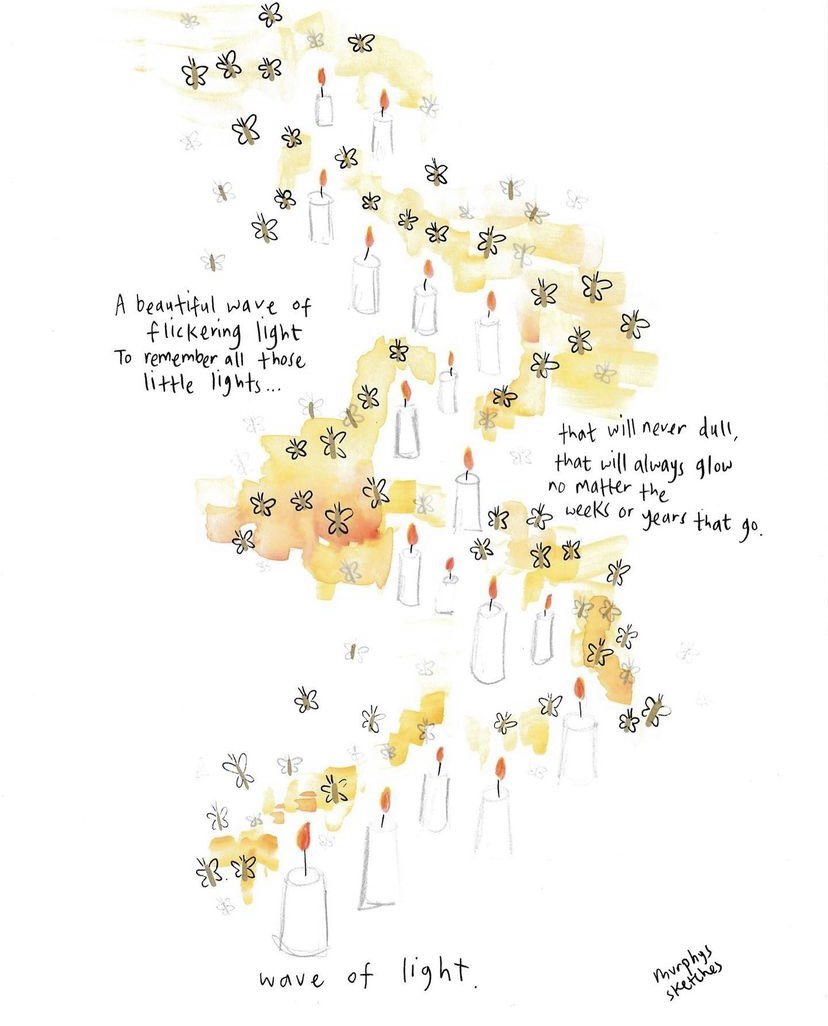 A beautiful wave of
flickering light
To remember all those
little lights...
that will never dull,
that will always glow
no matter the
weeks or years that go.
wave of light.
murphys
sketches